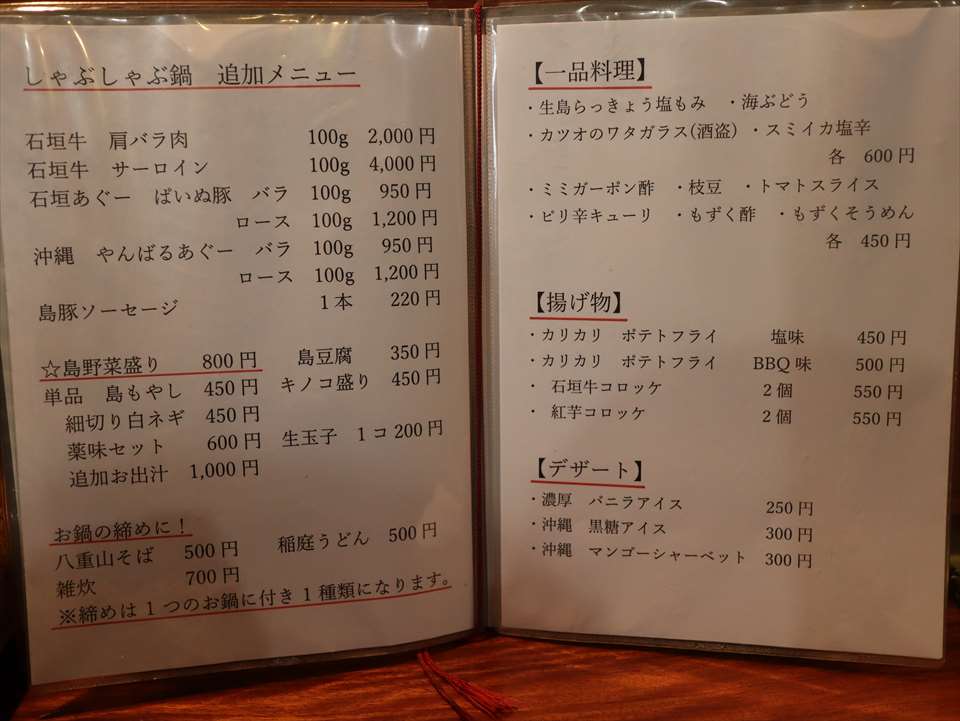 しゃぶしゃぶ鍋 追加メニュー
石垣牛 肩バラ肉 100g 2,000円
石垣牛 サーロイン 100g 4,000円
石垣あぐー ぱいぬ豚 バラ 100g 950円
ロース 100g 1,200円
沖縄 やんばるあぐー バラ 100g 950円
ロース 100g 1,200円
島豚ソーセージ 1本 220円
☆島野菜盛り 800円 島豆腐 350円
単品 島もやし 450円 キノコ盛り 450円
細切り白ネギ 450円
薬味セット 600円 生玉子 1コ200円
追加お出汁 1,000円
お鍋の締めに!
八重山そば 500円 稲庭うどん 500円
雑炊 700円
※締めは1つのお鍋に付き1種類になります。
【一品料理】
・生島らっきょう塩もみ ・海ぶどう
・カツオのワタガラス(酒盗) ・スミイカ塩辛
各 600円
・ミミガーポン酢 ・枝豆 ・トマトスライス
・ピリ辛キューリ ・もずく酢 ・もずくそうめん
各 450円
【揚げ物】
・カリカリ ポテトフライ 塩味 450円
・カリカリ ポテトフライ BBQ味 500円
・石垣牛コロッケ 2個 550円
・紅芋コロッケ 2個 550円
【デザート】
・濃厚 バニラアイス 250円
・沖縄 黒糖アイス 300円
・沖縄 マンゴーシャーベット 300円